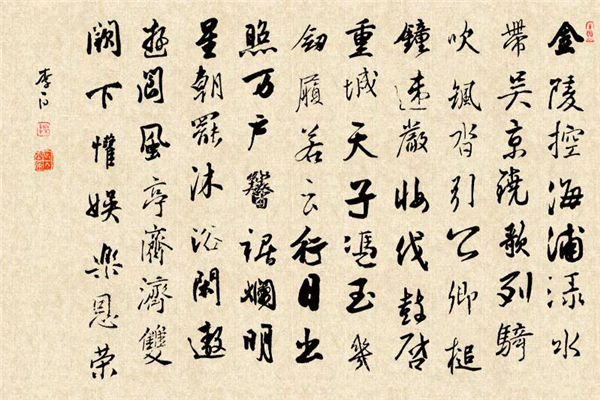 金陵控海浦渌水
帶吴京鐃歌列騎
吹飒沓引公卿槌
鐘速嚴妝伐鼓啓
重城天子馮玉几
劒履若云行日出
照万户簪裾斕明
星朝罷沐浴閑遨
遊閬風亭濟濟雙
闕下懽娱樂恩荣
李白